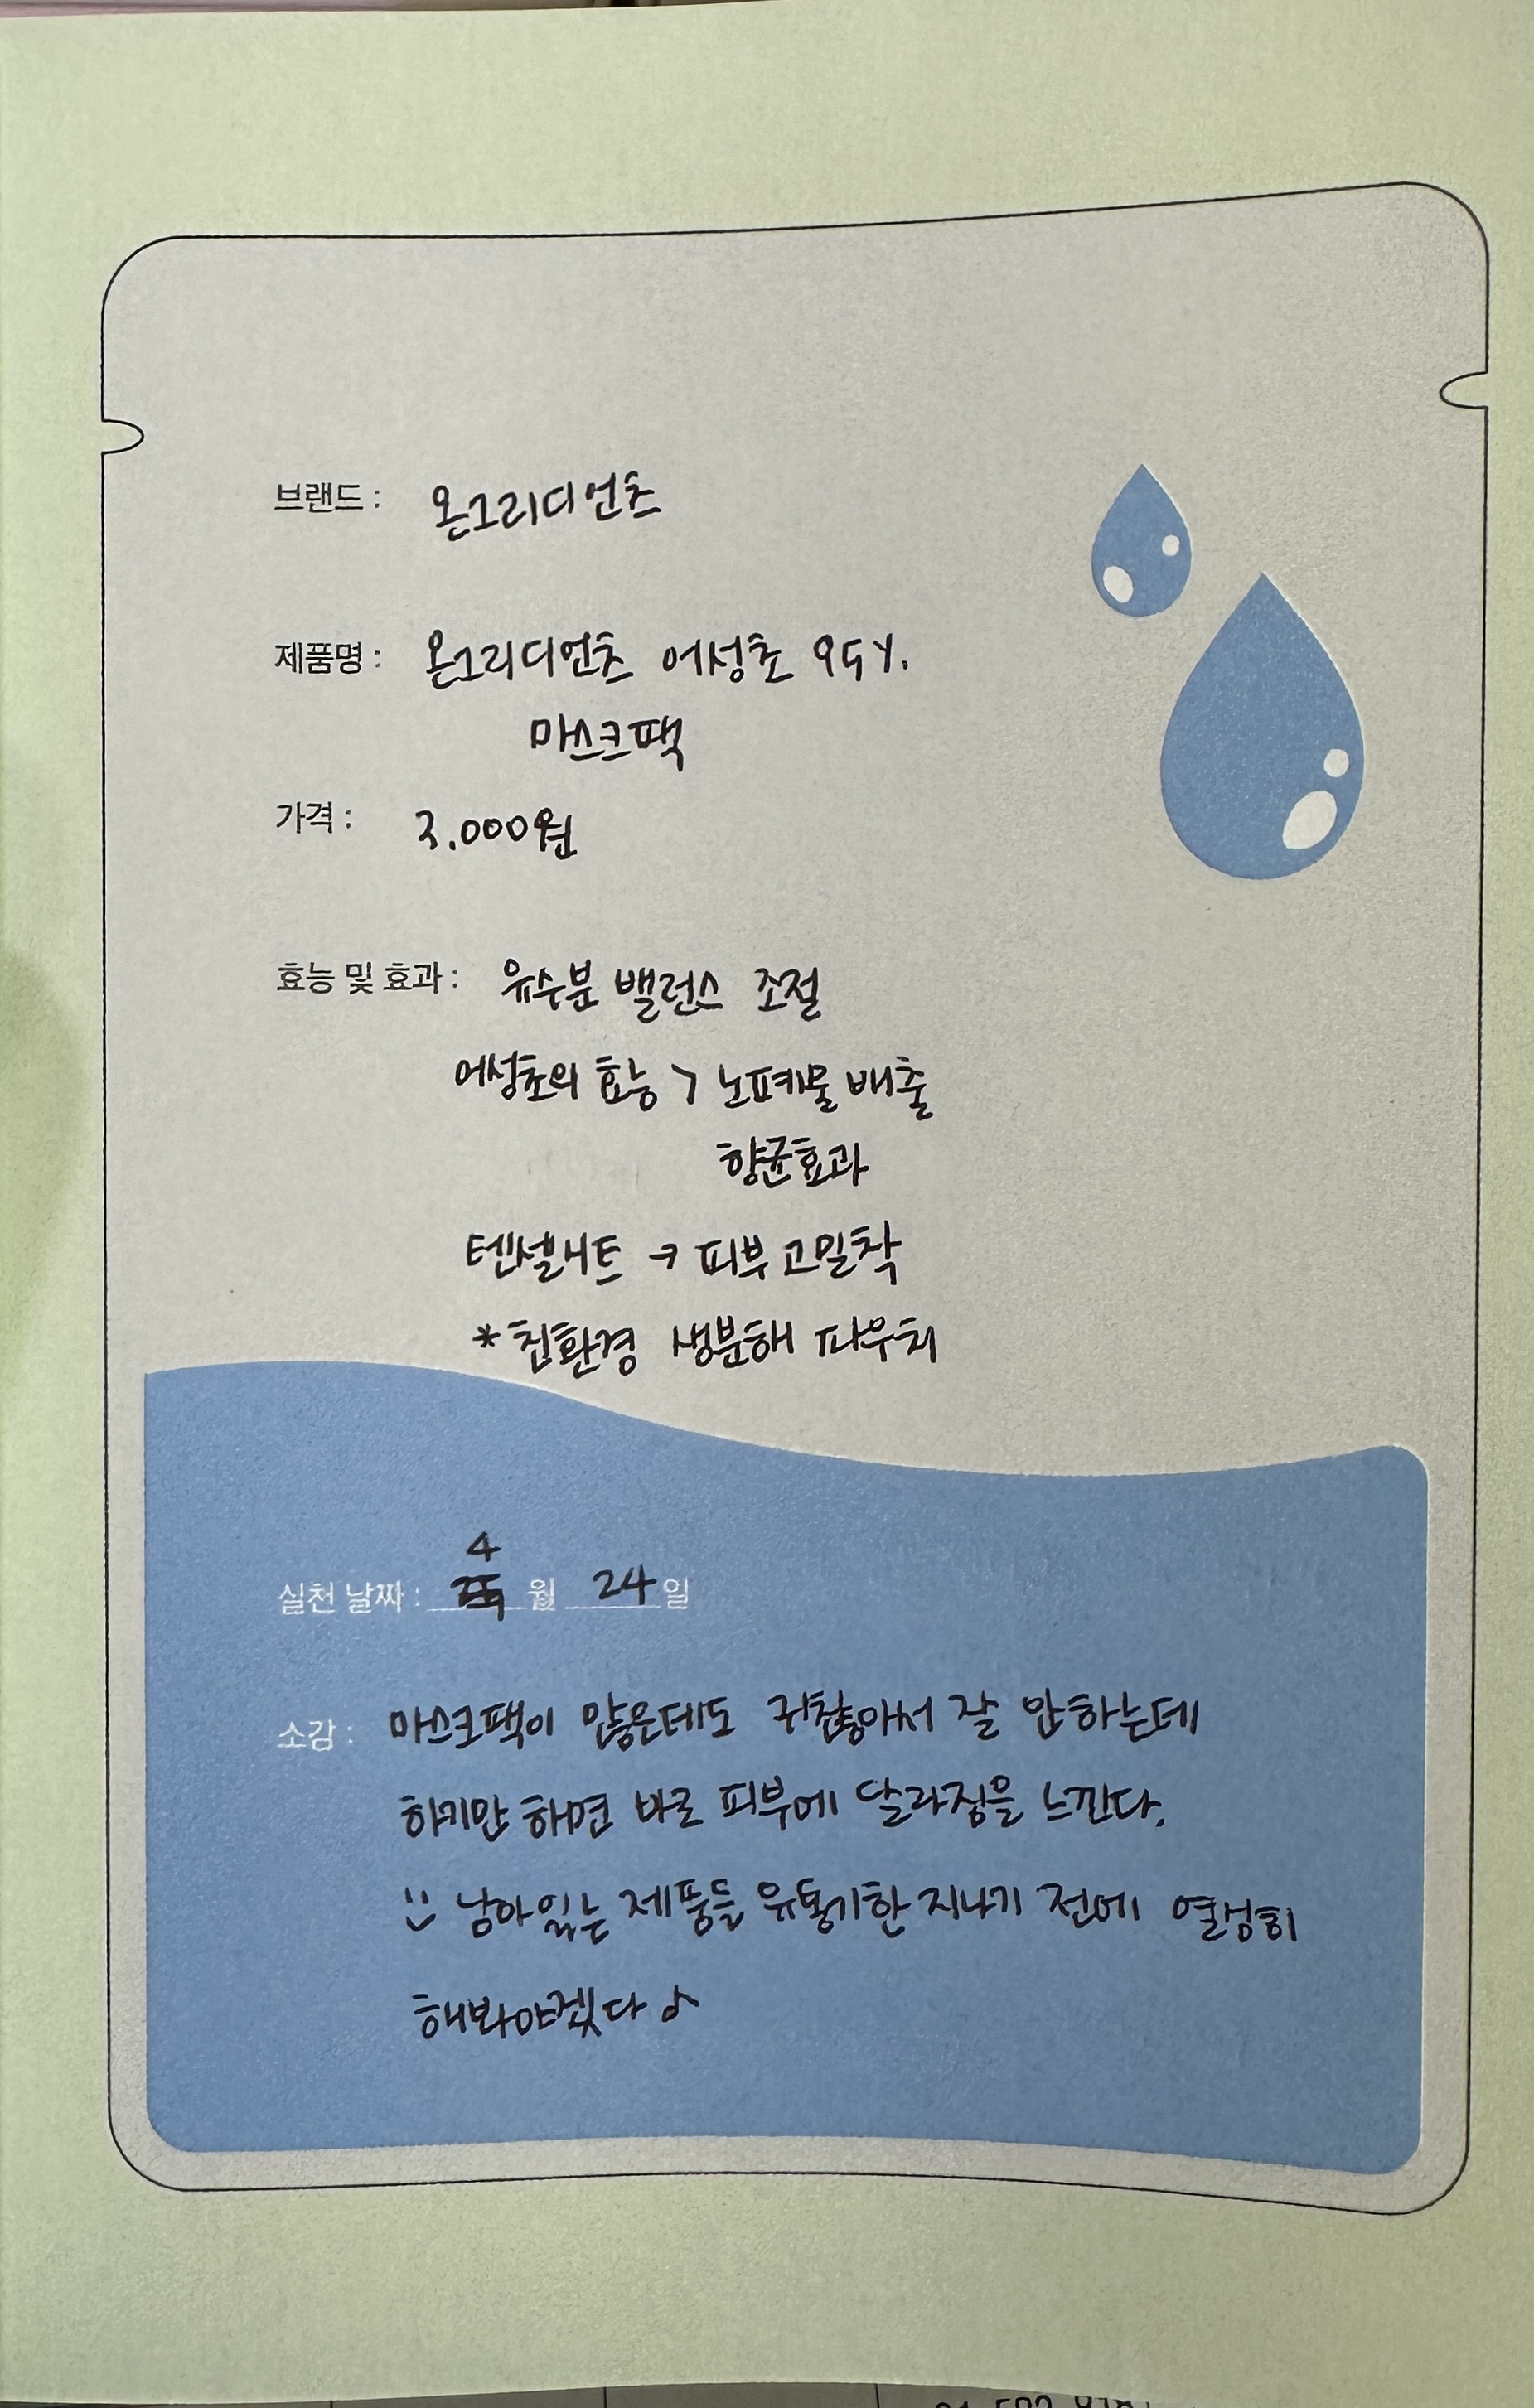 브랜드 : 온그리디언츠
제품명 : 온그리디언츠 어성초 95%
마스크팩
가격 : 3.000원
효능 및 효과 : 유수분 밸런스 조절
어성초의 효능 > 노폐물 배출
향균효과
텐셀시트 → 피부 고밀착
*친환경 생분해 파우치
4
실천 날짜 : 월 24 일
소감 : 마스크팩이 많은데도 귀찮아서 잘 안하는데
하기만 하면 바로 피부에 달라짐을 느낀다.
:) 남아있는 제품들 유통기한 지나기 전에 열심히
해봐야겠다 ♪